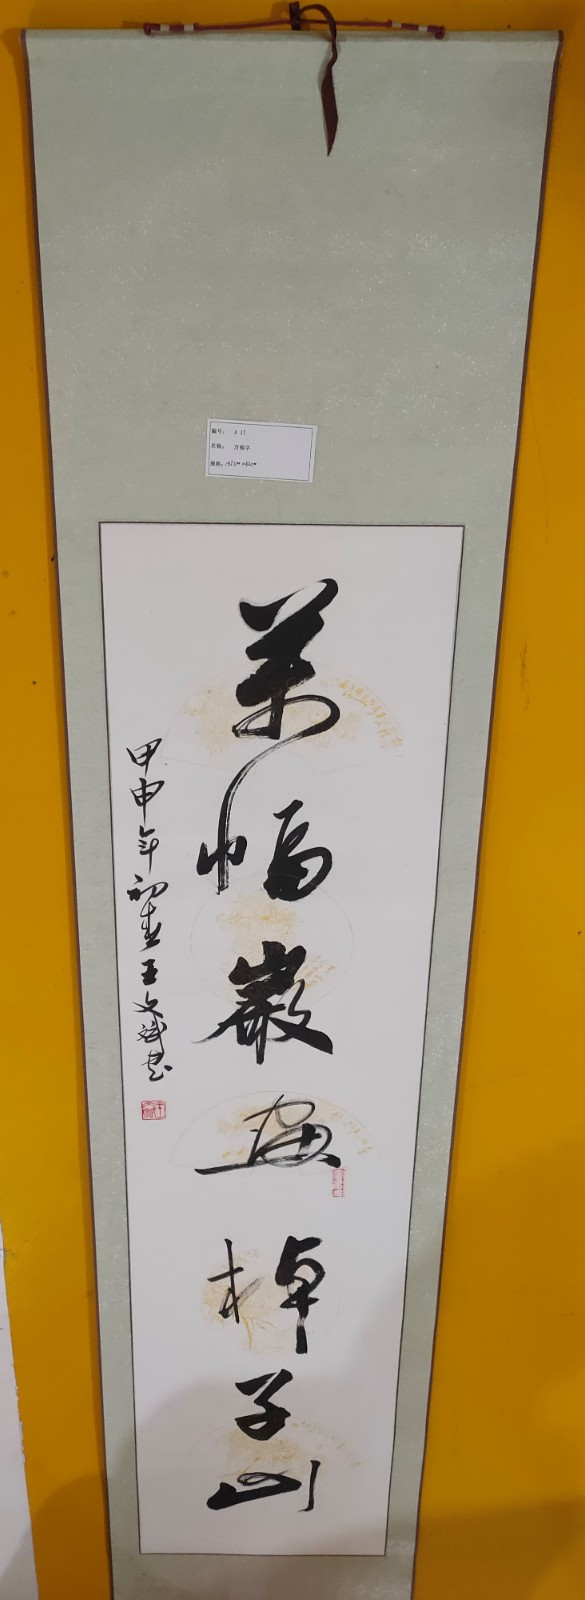 编号： A 17
名称： 方幅字
规格：
萬幅巖畫棹子山
甲申年初春王文斌书